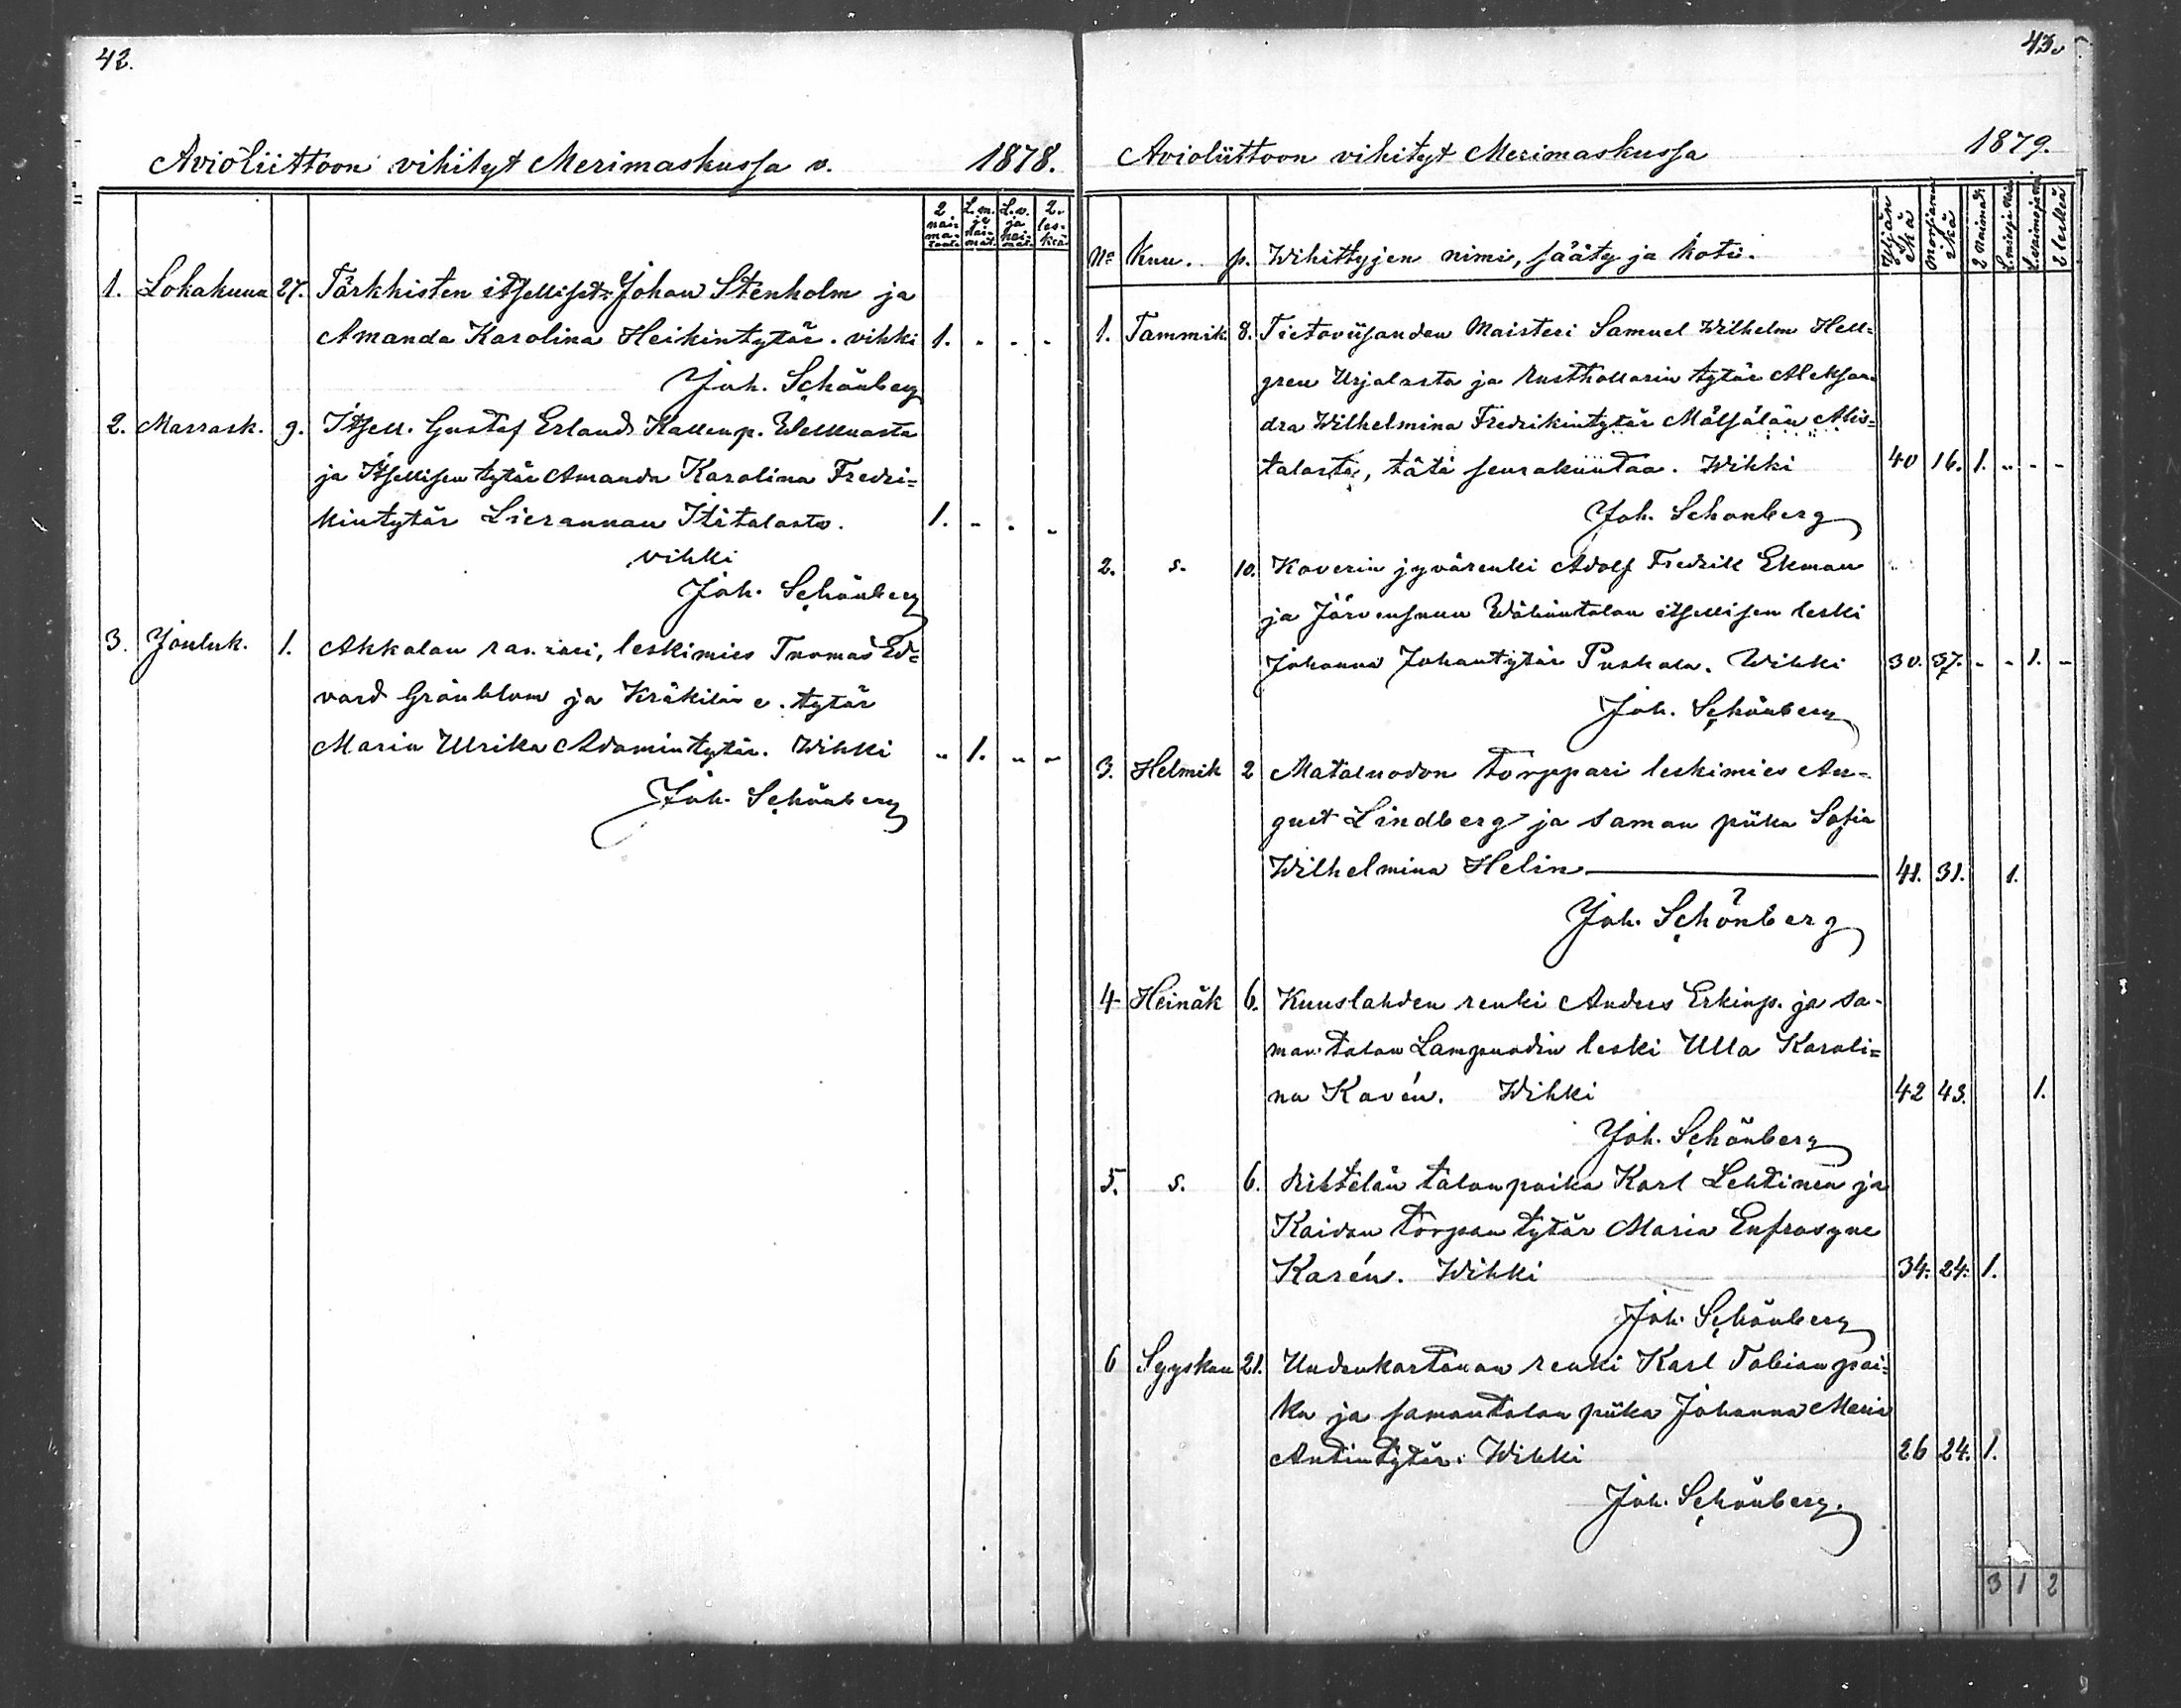 42.
Avioliittoon vihityt Merimaskussa v. 1878.
2 nai-ma-tonta L.m. ja nai-mat. L.v. ja nai-mat. 2 les-keä
1. Lokakuun 27. Tärkkisten itselliset Johan Stenholm ja
Amanda Karolina Heikintytär. vihki 1. - - -
Joh. Schönberg
2. Marrask. 9. Itsell. Gustaf Erland Kallenp.
ja Itsellisen tytär Amanda Karolina Fredri=
kintytär Lierannan Ititalosta. 1. - - -
vihki
Joh. Schönberg
3. Jouluk. 1. Akkolan leskimies Tuomas Ed=
vard Grönblom ja e. tytär
Maria Ulrika Adamintytär. Wihki - 1. - -
Joh. Schönberg
43.
Avioliittoon vihityt Merimaskussa 1879.
No Kuu. p. Wihittyjen nimi, sääty ja koti. Yljän ikä Morsiamen ikä 2 naimat. 2 leskeä
1. Tammik. 8. Tietoviisauden Maisteri Samuel Wilhelm Hell=
gren Urjalasta ja Rusthollarin tytär Aleksan=
dra Wilhelmina Fredrikintytär Mälsälän Alis=
talosta, tätä seurakuntaa. Wihki 40 16. 1. - - -
Joh. Schonberg
2. s. 10. Koverin jyvärenki Adolf Fredrik Ekman
ja Järvensuun itsellisen leski
Johanna Juhantytär Puskala. Wihki 30. 37. - - 1. -
Joh. Schönberg
3. Helmik 2 Mataluodon torppari leskimies Au=
gust Lindberg ja saman piika Sofia
Wilhelmina Helin 41. 31. 1.
Joh. Schönberg
4 Heinäk 6. Kuuslahden renki Anders Erkinp. ja sa-
man talon Lampuodin leski Ulla Karoli=
na Kavén. Wihki 42 43. 1.
Joh. Schönberg
5. s. 6. talonpoika Karl Lehtinen ja
Kaidan torpan tytär Maria Eufrosyne
Karén. Wihki 34. 24. 1.
Joh. Schönberg
6 Syyskuu 21. Uudenkartanon renki Karl Tobianpoi=
ka ja samantalon piika Johanna Maria
Antintytär. Wihki 26 24. 1.
Joh. Schönberg.
3 1 2